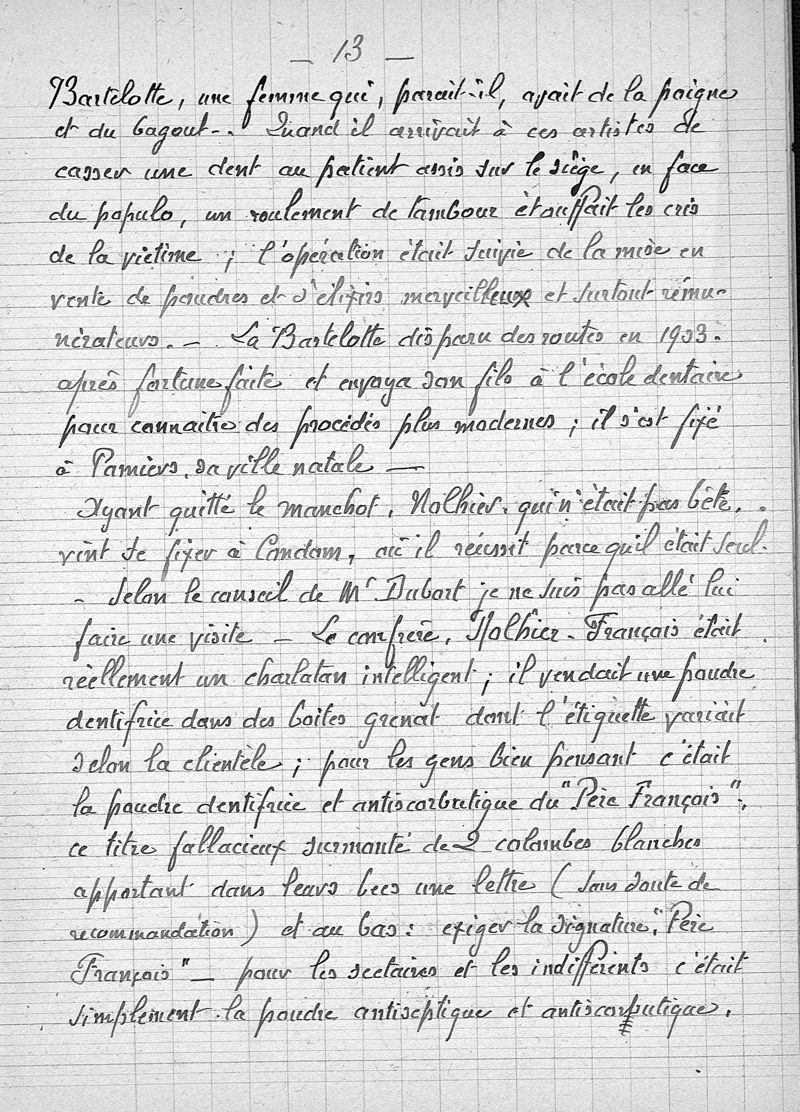 — 13 —
Bartelotte, une femme qui, parait-il, avait de la poigne
et du bagout.. Quand il arrivait à ces artistes de
casser une dent au patient assis sur le siège, en face
du populo, un roulement de tambour étouffait les cris
de la victime ; l'opération était suivie de la mise en
vente de poudres et d'élixirs merveilleux et surtout rému-
nérateurs. — La Bartelotte disparu des routes en 1903.
après fortune faite et envoya son fils à l'école dentaire
pour connaitre des procédés plus modernes ; il s'est fixé
à Pamiers, sa ville natale —
Ayant quitté le manchot, Nolhier, qui n'était pas bête,
vint se fixer à Condom, où il réussit parce qu'il était seul.
- Selon le conseil de Mr Dubort je ne suis pas allé lui
faire une visite — Le confrère, Nolhier-François était
réellement un charlatan intelligent ; il vendait une poudre
dentifrice dans des boites grenat dont l'étiquette variait
selon la clientèle ; pour les gens bien pensant c'était
la poudre dentifrice et antiscorbutique du "Père François",
ce titre fallacieux surmonté de 2 colombes blanches
apportant dans leurs becs une lettre (sans doute de
recommandation) et au bas : exiger la signature, "Père
François" — pour les sectaires et les indifférents c'était
simplement la poudre antiseptique et antiscorbutique.